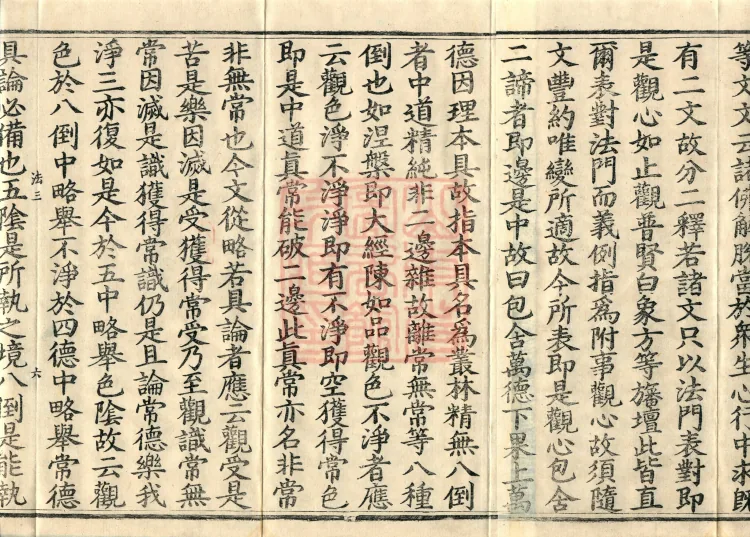 等文文云諸佛解脫當於衆生心行中求旣
有二文故分二釋若諸文只以法門表對即
是觀心如止觀普賢白象方等旛壇此皆直
爾表對法門而義例指爲附事觀心故須隨
文豐約唯變所適故今所表即是觀心包含
二諦者即邊是中故曰包含萬德下果上萬
德因理本具故指本具名爲叢林精無八倒
者中道精純非二邊雜故離常無常等八種
倒也如涅槃即大經陳如品觀色不淨者應
云觀色淨不淨淨即有不淨即空獲得常色
即是中道眞常能破二邊此眞常亦名非常
非無常也今文從略若具論者應云觀受是
苦是樂因滅是受獲得常受乃至觀識常無
常因滅是識獲得常識仍是且論常德樂我
淨三亦復如是今於五中略舉色陰故云觀
色於八倒中略舉不淨於四德中略舉常德
法三 六
具論必備也五陰是所執之境八倒是能執